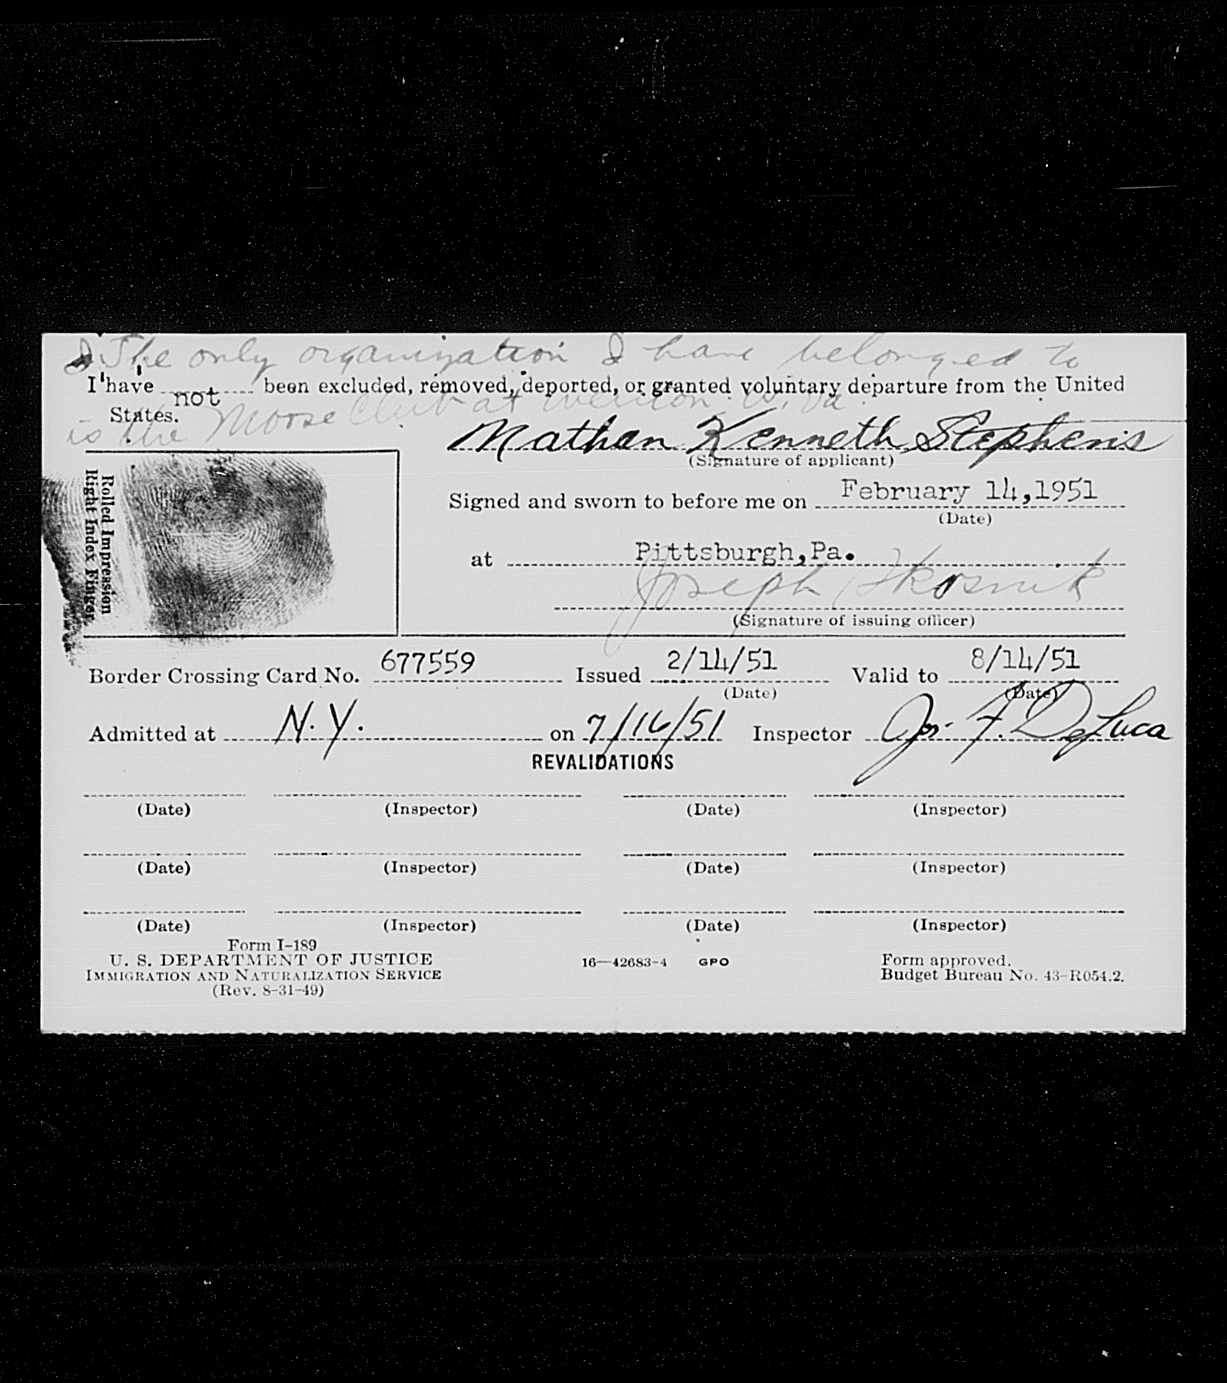 The only organization I have belonged to
I have not been excluded, removed, deported, or granted voluntary departure from the United
States.
is the Moose Club at W. Va
Nathan Kenneth Stephens
(Signature of applicant)
Rolled Impression
Right Index Finger
Signed and sworn to before me on February 14,1951
(Date)
at Pittsburgh,Pa.
Joseph
(Signature of issuing officer)
Border Crossing Card No. 677559 Issued 2/14/51 Valid to 8/14/51
(Date) (Date)
Admitted at N.Y. on 7/16/51 Inspector Jos. F. DeLuca
REVALIDATIONS
(Date) (Inspector) (Date) (Inspector)
(Date) (Inspector) (Date) (Inspector)
(Date) (Inspector) (Date) (Inspector)
Form I-189
U. S. DEPARTMENT OF JUSTICE
IMMIGRATION AND NATURALIZATION SERVICE
(Rev. 8-31-49)
16—42683-4 GPO
Form approved.
Budget Bureau No. 43-R054.2.